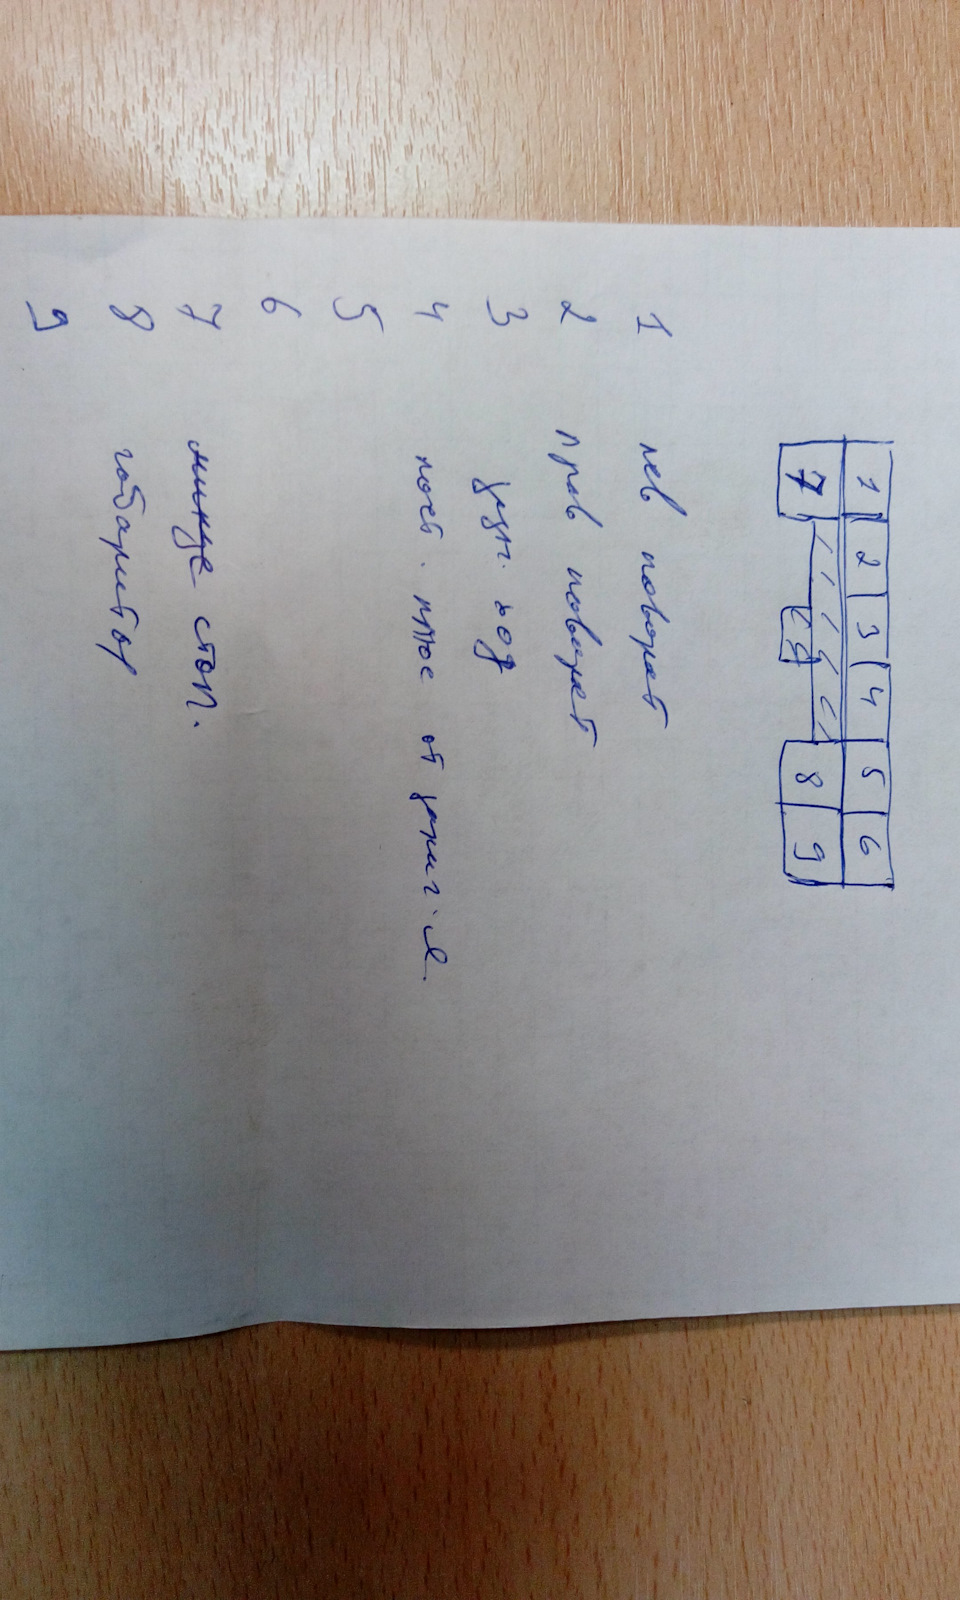 1 2 3 4 5 6
7 8 9
1 лев поворот
2 прав поворот
3 зун. ход
4 пост. плюс от зажиг.я.
5
6
7 минус стоп.
8 габаритор
9